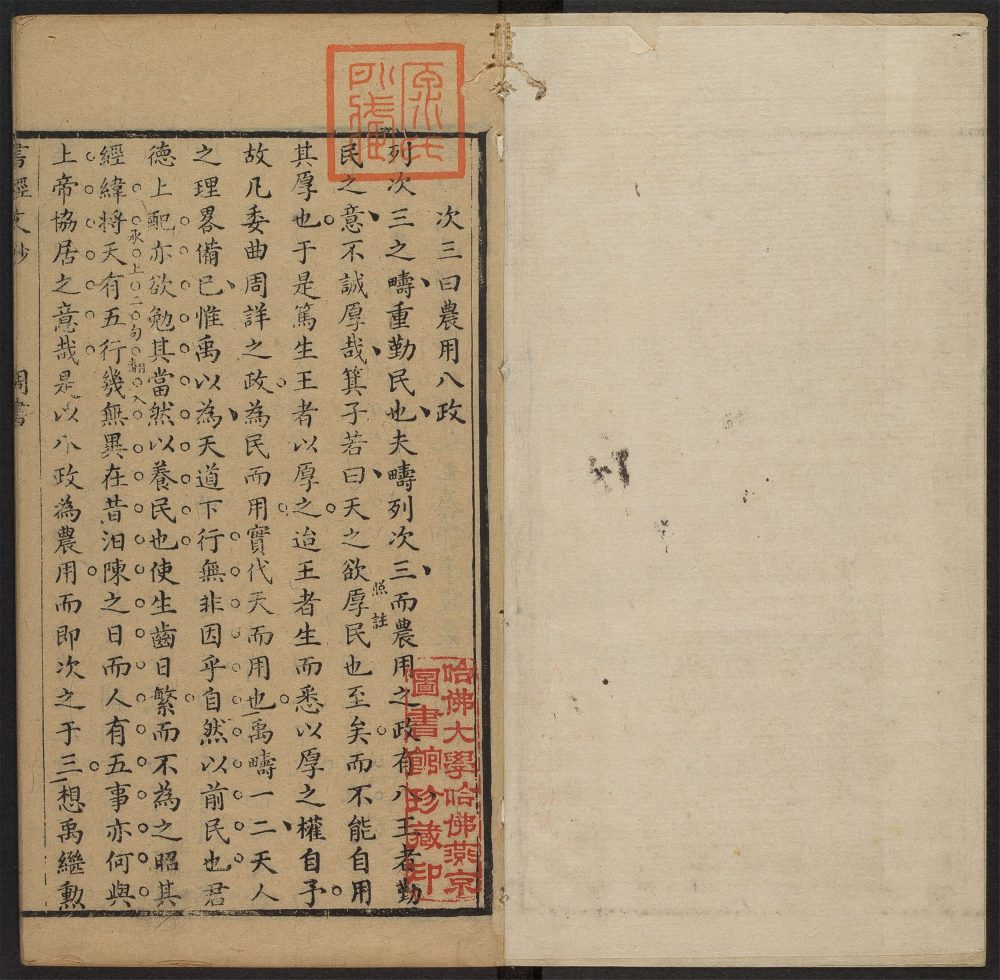 次三曰農用八政
列次三之疇重勤民也夫疇列次三而農用之政有八王者勤
民之意不誠厚哉箕子若曰天之欲厚民也至矣而不能自用
照註
其厚也于是篤生王者以厚之迨王者生而悉以厚之權自予
故凡委曲周詳之政為民而用實代天而用也禹疇一二天人
之理畧備已惟禹以為天道下行無非因乎自然以前民也君
德上配亦欲勉其當然以養民也使生齒日繁而不為之昭其
承上二句翻入
經緯將天有五行幾無異在昔汨陳之日而人有五事亦何與
上帝協居之意哉是以八政為農用而即次之于三想禹繼勲
書經文抄
周書
哈佛大學哈佛燕京
圖書館珍藏印